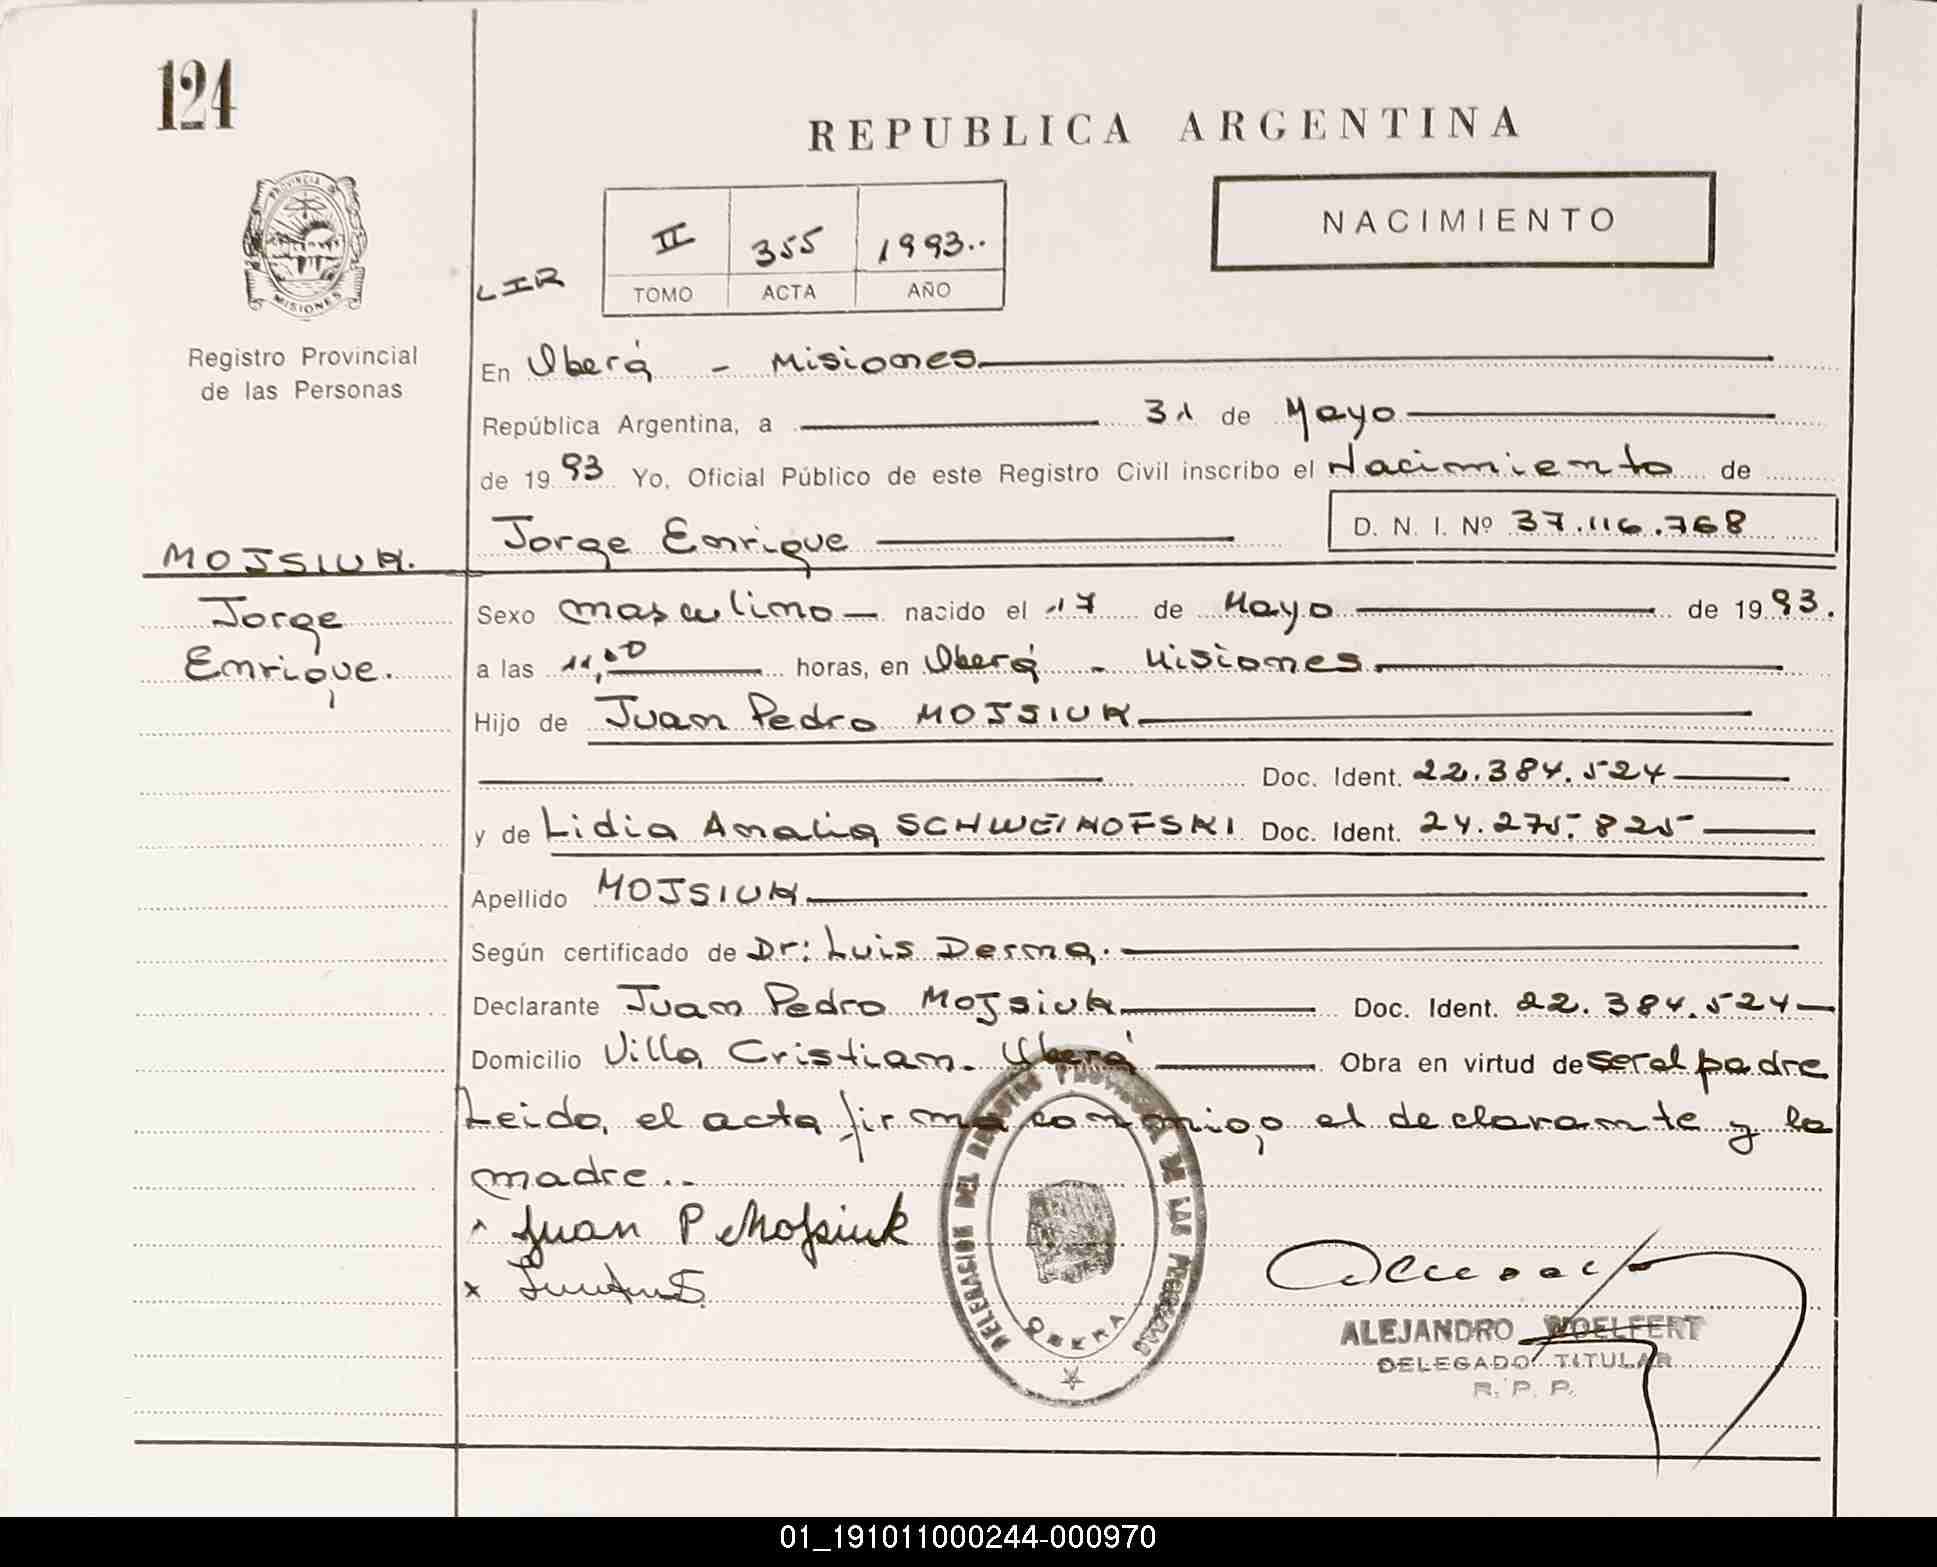 124
REPUBLICA ARGENTINA
NACIMIENTO
PROVINCIA DE
MISIONES
Registro Provincial
de las Personas
LIR
II 355 1993..
TOMO ACTA AÑO
En Oberá - Misiones
República Argentina, a 31 de Mayo
de 1993 Yo, Oficial Público de este Registro Civil inscribo el Nacimiento de
Jorge Enrique D. N. I. Nº 37.116.768
MOJSIUK.
Jorge
Enrique.
Sexo masculino nacido el 17 de Mayo de 1993.
a las 11,00 horas, en Oberá - Misiones.
Hijo de Juan Pedro MOJSIUK
Doc. Ident. 22.384.524
y de Lidia Analia SCHWEIKOFSKI Doc. Ident. 24.275.825
Apellido MOJSIUK
Según certificado de Dr: Luis Derna.
Declarante Juan Pedro Mojsiuk Doc. Ident. 22.384.524
Domicilio Villa Cristian. Oberá Obra en virtud de ser el padre
Leida, el acta firma conmigo el declarante y la
madre..
Juan P Mojsiuk
x
DELEGACION DEL REGISTRO PROVINCIAL DE LAS PERSONAS
OBERA
ALEJANDRO WOELFERT
DELEGADO TITULAR
R. P. P.
01_191011000244-000970